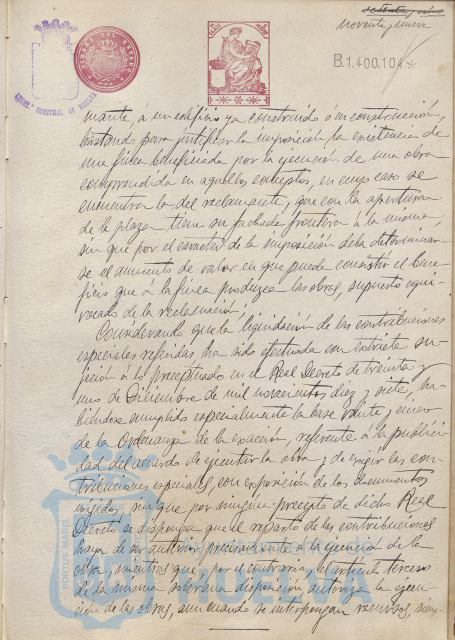 setenta y ocho
noventa y nueve
B.1.400.104
ARCHº MUNICIPAL DE HUELVA
mante, á un edificio ya construido ó en construcción,
bastando para justificar la imposición la existencia de
una finca beneficiada por la ejecución de una obra
comprendida en aquellos conceptos, en cuyo caso se
encuentra la del reclamante, que con la apertura
de la plaza tiene su fachada frontera á la misma,
sin que por el caracter de la imposición deba determinar-
se el aumento de valor en que pueda consistir el bene-
ficio que á la finca produzcan las obras, supuesto equi-
vocado de la reclamación.
Considerando que la liquidación de las contribuciones
especiales referidas, ha sido efectuada con extricta su-
jeción á lo preceptuado en el Real Decreto de treinta y
uno de Diciembre de mil novecientos diez y siete, ha-
biéndose cumplido especialmente la base veinte y nueve
de la Ordenanza de la exacción, referente á la publici-
dad del acuerdo de ejecutar la obra y de exigir las con-
tribuciones especiales, con exposición de los documentos
exigidos, sin que por ningun precepto de dicho Real
Decreto se disponga que el reparto de las contribuciones
haya de ser anterior precisamente á la ejecución de la
obra, mientras que, por el contrario, el artículo tercero
de la misma soberana disposición autoriza la ejecu-
ción de las obras, aun cuando se interpongan recursos, siem-
PORTUS MARIS
Ayuntamiento de
HUELVA